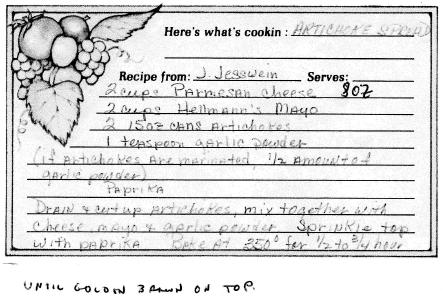 Here's what's cookin: ARTICHOKE SPREAD
Recipe from: J. Jesswein Serves:
2 cups Parmesan Cheese 8oz
2 cups Hellmann's Mayo
2 15oz cans Artichokes
1 teaspoon garlic powder
(if Artichokes Are marinated, 1/2 amount of
garlic powder)
Paprika
Drain & cut up Artichokes, mix together with
cheese, mayo & garlic powder Sprinkle top
with paprika Bake At 350° for 1/2 to 3/4 hour
UNTIL GOLDEN BROWN ON TOP.